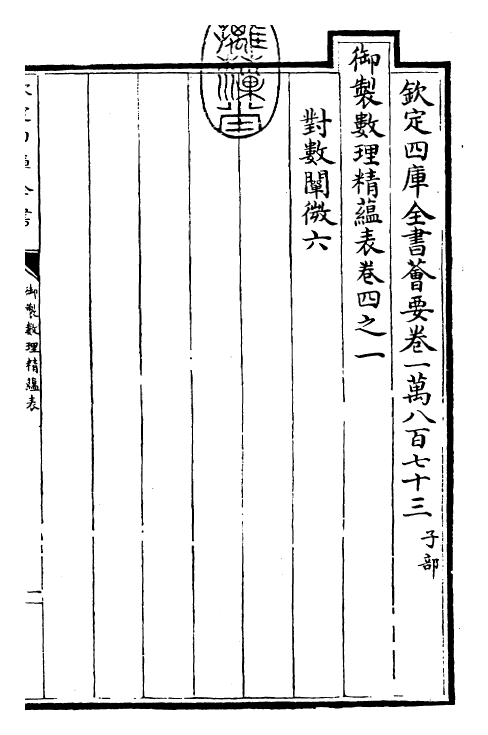 欽定四庫全書薈要卷一萬八百七十三 子部
御製數理精蘊表卷四之一
對數闡微六
御製數理精蘊表